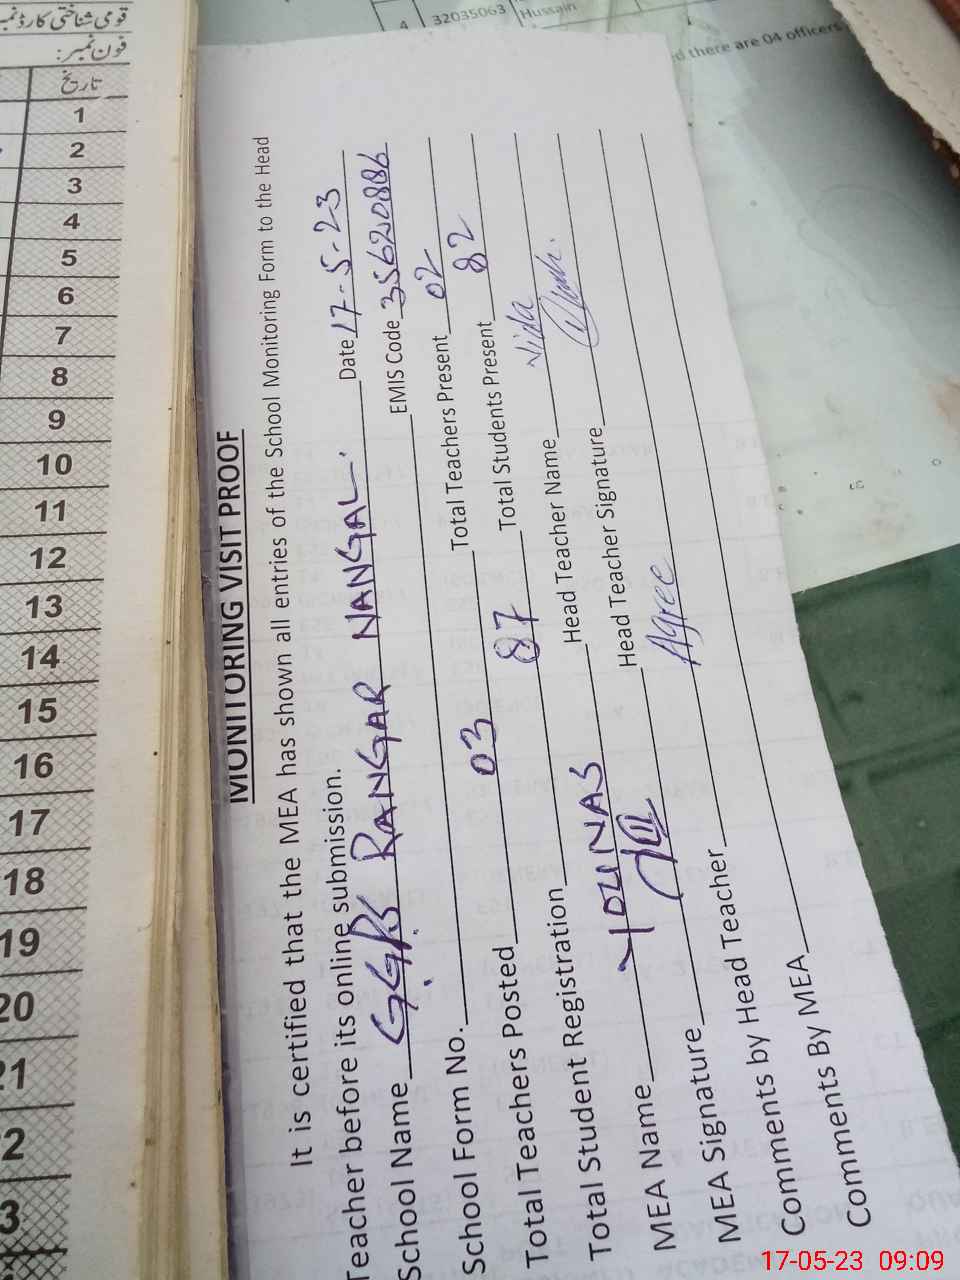 MONITORING VISIT PROOF
It is certified that the MEA has shown all entries of the School Monitoring Form to the Head
Teacher before its online submission.
School Name GGPS RANGAR NANGAL. Date 17-5-23
School Form No. EMIS Code 35620886
Total Teachers Posted 03 Total Teachers Present 02
Total Student Registration 87 Total Students Present 82
MEA Name YOUNAS Head Teacher Name Nida
MEA Signature Head Teacher Signature
Comments by Head Teacher Agree
Comments By MEA
قومی شناختی کارڈ نمبر
فون نمبر:
تاریخ
1
2
3
4
5
6
7
8
9
10
11
12
13
14
15
16
17
18
19
20
21
4 32035063 Hussain
there are 04 officers
17-05-23 09:09